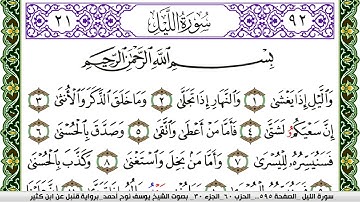 ٩٢ سُورَةُ اللَّيْلِ ٢١
بِسْمِ اللَّهِ الرَّحْمَٰنِ الرَّحِيمِ
وَاللَّيْلِ إِذَا يَغْشَىٰ ١ وَالنَّهَارِ إِذَا تَجَلَّىٰ ٢ وَمَا خَلَقَ الذَّكَرَ وَالْأُنثَىٰ ٣
إِنَّ سَعْيَكُمُ لَشَتَّىٰ ٤ فَأَمَّا مَنْ أَعْطَىٰ وَاتَّقَىٰ ٥ وَصَدَّقَ بِالْحُسْنَىٰ ٦
فَسَنُيَسِّرُهُ لِلْيُسْرَىٰ ٧ وَأَمَّا مَنْ بَخِلَ وَاسْتَغْنَىٰ ٨ وَكَذَّبَ بِالْحُسْنَىٰ
سورة الليل الصفحة ٥٩٥ الحزب ٦٠ الجزء ٣٠ بصوت الشيخ يوسف نوح احمد برواية قنبل عن ابن كثير